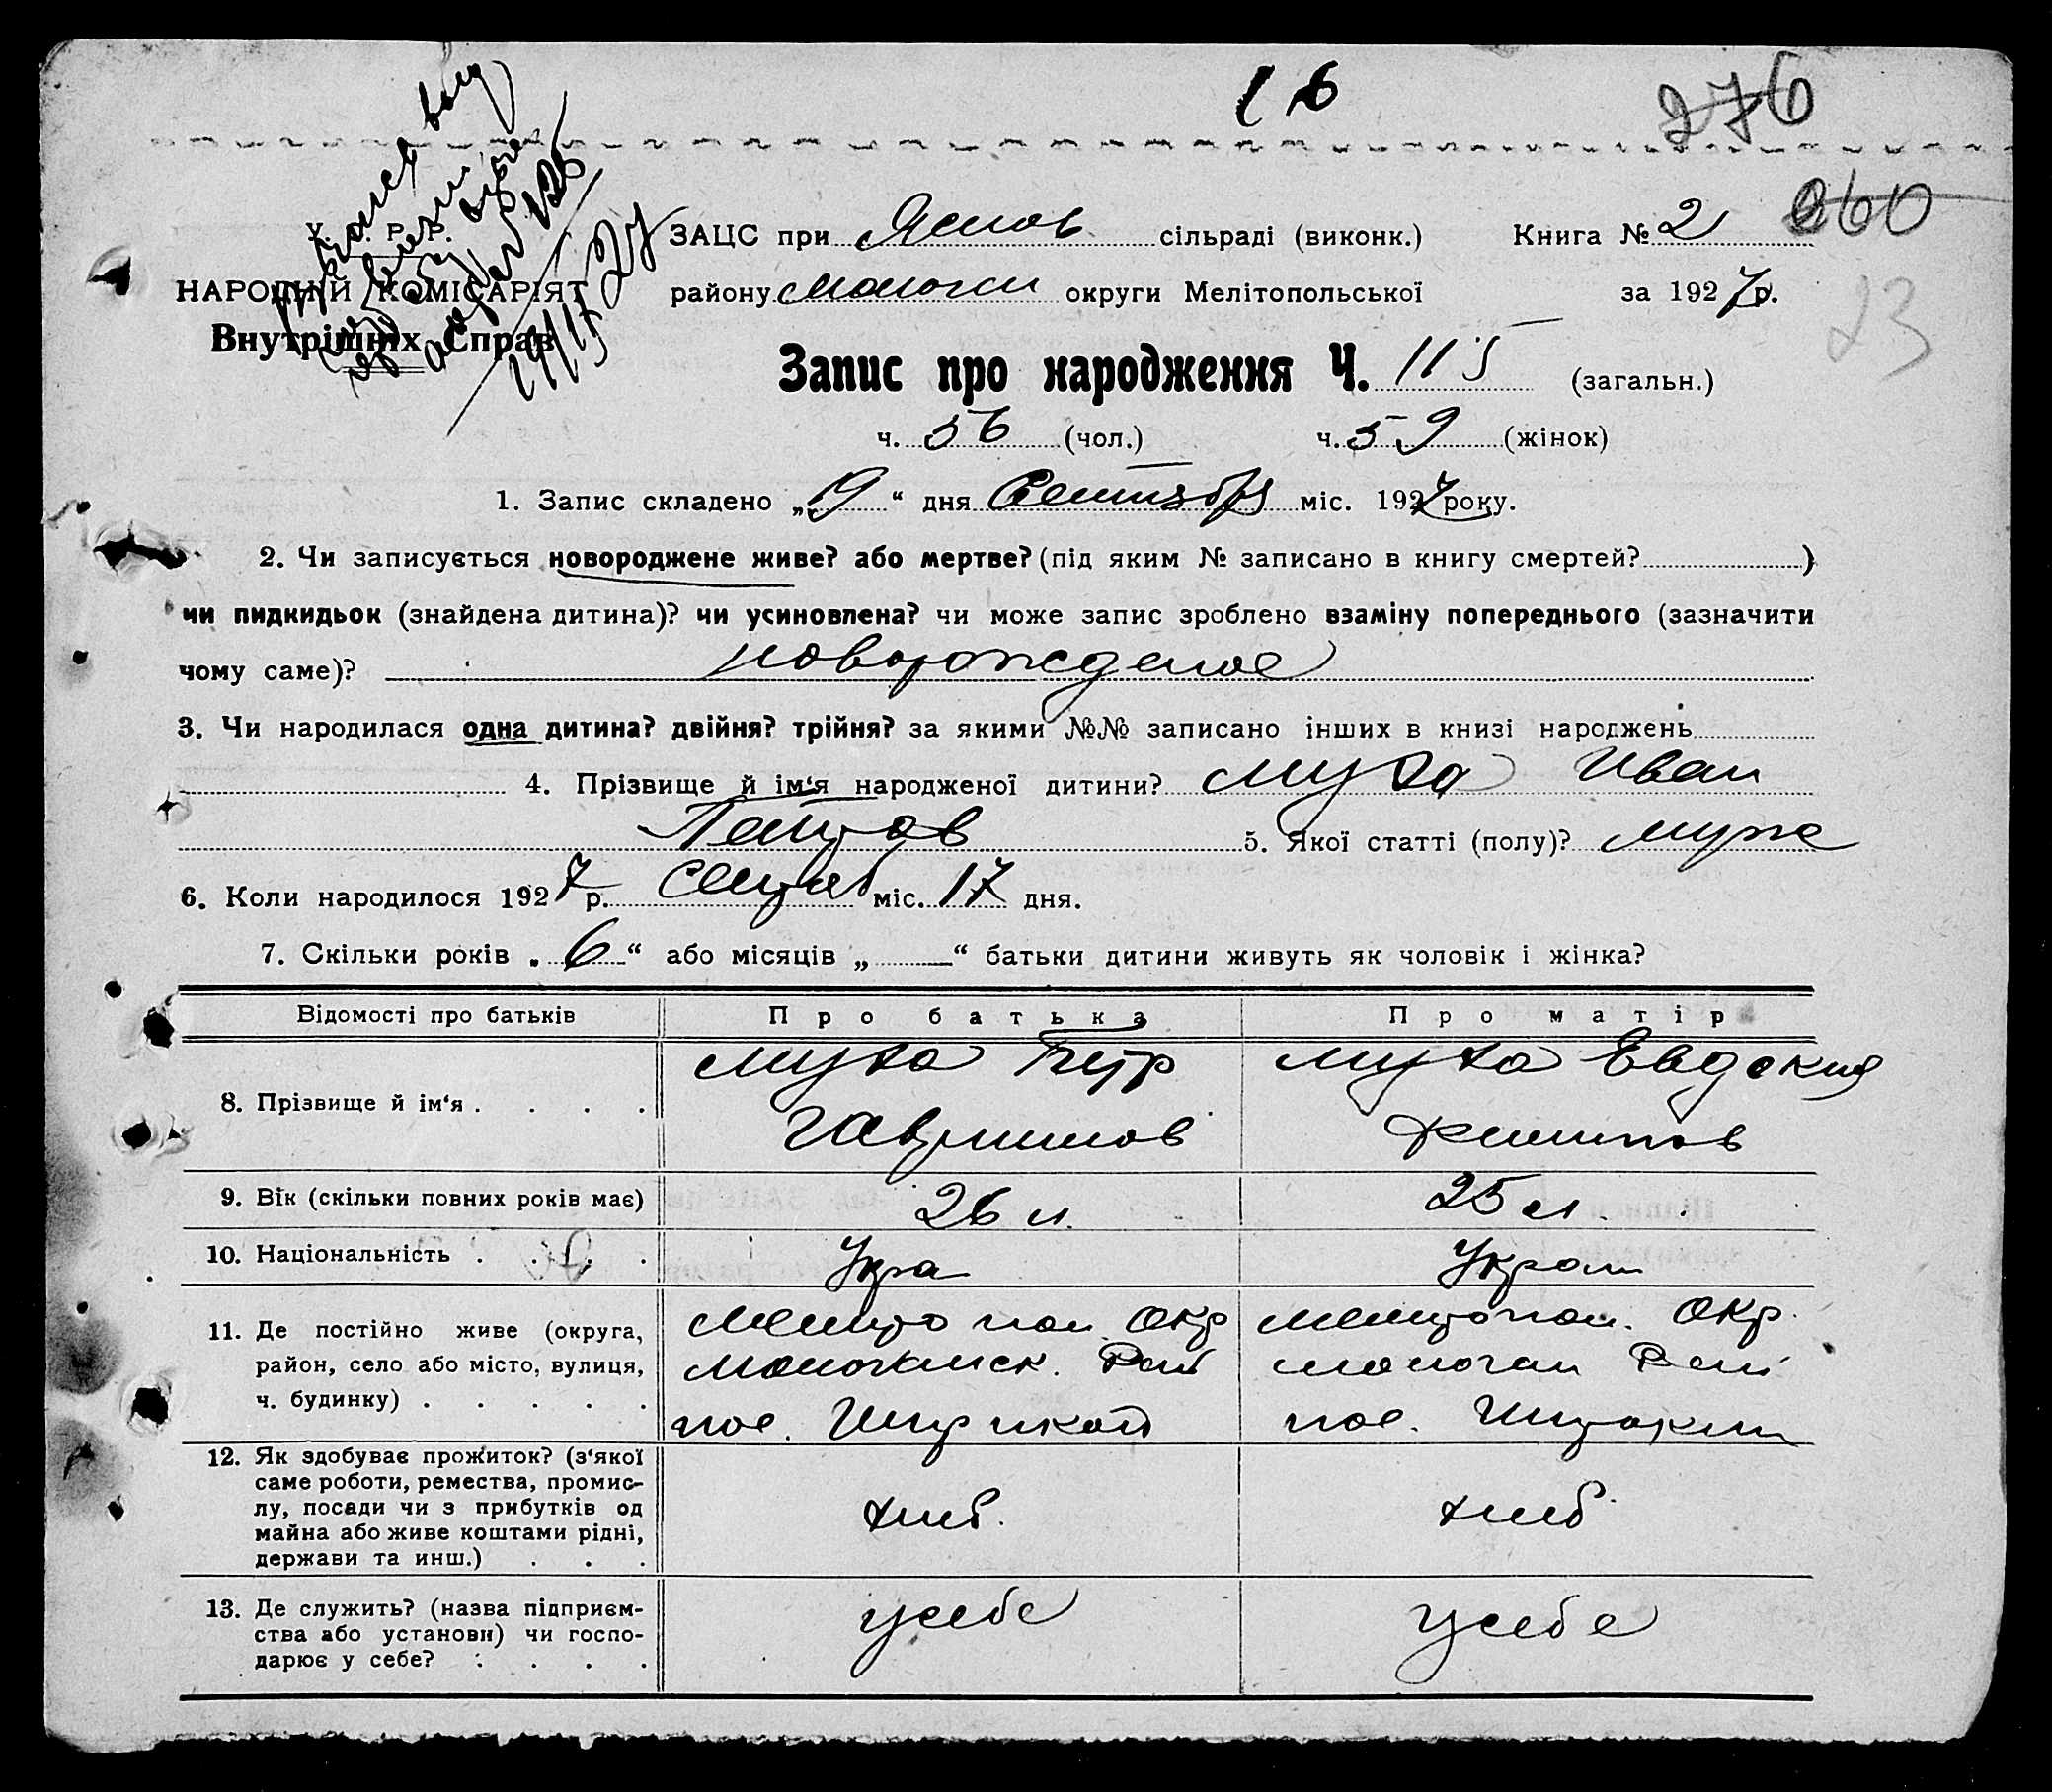 16
276
У. С. Р. Р.
ЗАЦС при Яснов сільраді (виконк.) Книга № 2 260
НАРОДНИЙ КОМІСАРІЯТ
району округи Мелітопольської за 1927 р.
23
Внутрішніх Справ
Запис про народження Ч. 115 (загальн.)
ч. 56 (чол.) ч. 59 (жінок)
1. Запис складено „19“ дня Сентября міс. 1927 року.
2. Чи записується новороджене живе? або мертве? (під яким № записано в книгу смертей? )
чи пидкидьок (знайдена дитина)? чи усиновлена? чи може запис зроблено взаміну попереднього (зазначити
чому саме)? новорожденое
3. Чи народилася одна дитина? двійня? трійня? за якими №№ записано інших в книзі народжень
4. Прізвище й ім‘я народженої дитини? Муха Иван
Петров 5. Якої статті (полу)? муж
6. Коли народилося 1927 р. Сентяб міс. 17 дня.
7. Скільки років „6“ або місяців „ — “ батьки дитини живуть як чоловік і жінка?
Відомості про батьків Про батька Про матір
8. Прізвище й ім‘я . . . . Муха Петр Муха Евдокия
Гаврилов Филипов
9. Вік (скільки повних років має) 26 л. 25 л.
10. Національність . . . . Укра Украи
11. Де постійно живе (округа, Мелитопол. Окр Мелитопол. Окр.
район, село або місто, вулиця, Молочанск. Рай Молочан Рай
ч. будинку) . . . . . пос. пос.
12. Як здобуває прожиток? (з‘якої
саме роботи, ремества, промис-
лу, посади чи з прибутків од хлеб. хлеб
майна або живе коштами рідні,
держави та инш.) . . .
13. Де служить? (назва підприєм- у себе у себе
ства або установи) чи госпо-
дарює у себе? . . . .